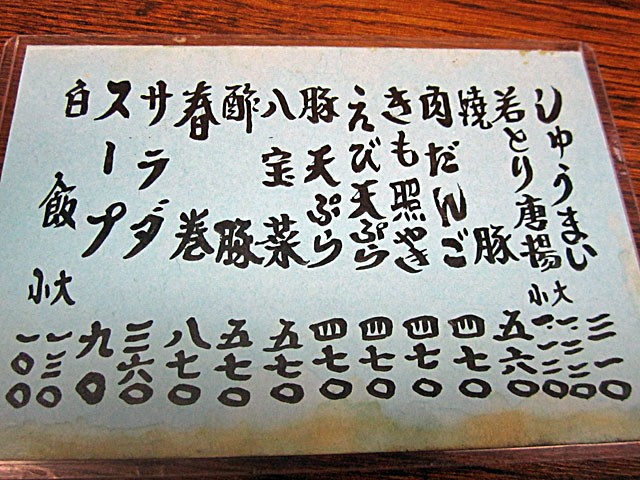 しゅうまい 三一〇
若とり唐揚 大
小
焼豚 五六〇
肉だんご 四七〇
きも照やき 四七〇
えび天ぷら 四七〇
豚天ぷら 四七〇
八宝菜 五七〇
酢豚 五七〇
春巻 八七〇
サラダ 三六〇
スープ 九〇
白飯 大 一三〇
小 一〇〇